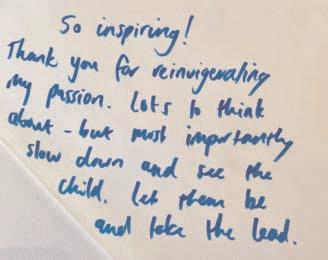 So inspiring!
Thank you for reinvigerating
my passion. Lots to think
about - but most importantly
slow down and see the
child. Let them be
and take the lead.